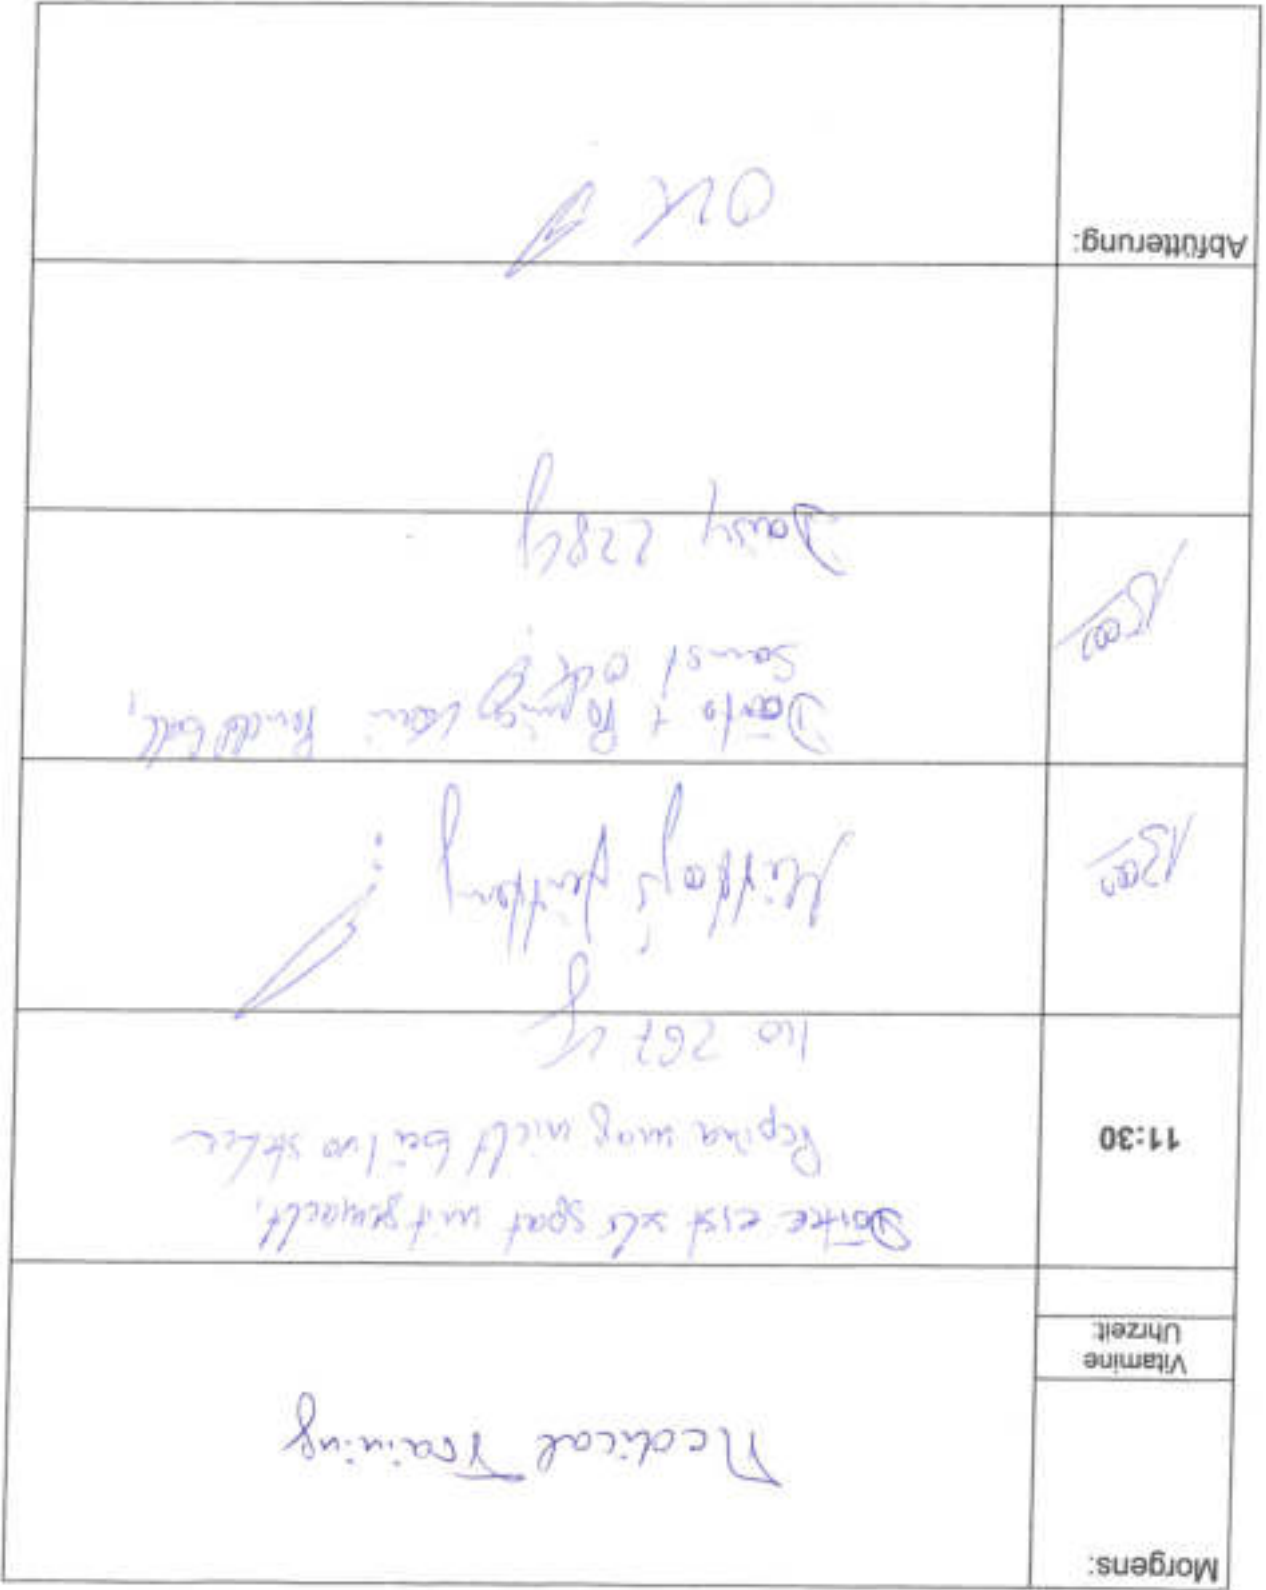 Morgens:
Medical Training
Vitamine
Uhrzeit:
11:30
Dörte erst sehr spät mitgemacht,
Pepina mag nicht bei Ivo stehen
Ivo 267 kg
13 00
Mittagsfütterung
15 00
Dörte + Pepina kein
sonst OK
Daisy 228 kg
Abfütterung:
OK